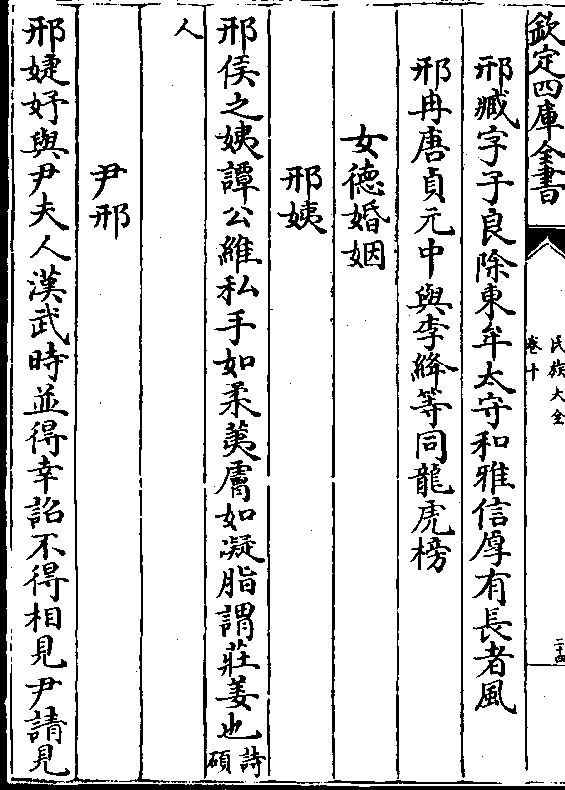 欽定四庫全書
民族大全
卷十
二十四
邢臧字子良除東牟太守和雅信厚有長者風
邢冉唐貞元中與李絳等同龍虎榜
女德婚姻
邢姨
邢侯之姨譚公維私手如柔荑膚如凝脂謂莊姜也詩
碩
人
尹邢
邢婕妤與尹夫人漢武時並得幸詔不得相見尹請見